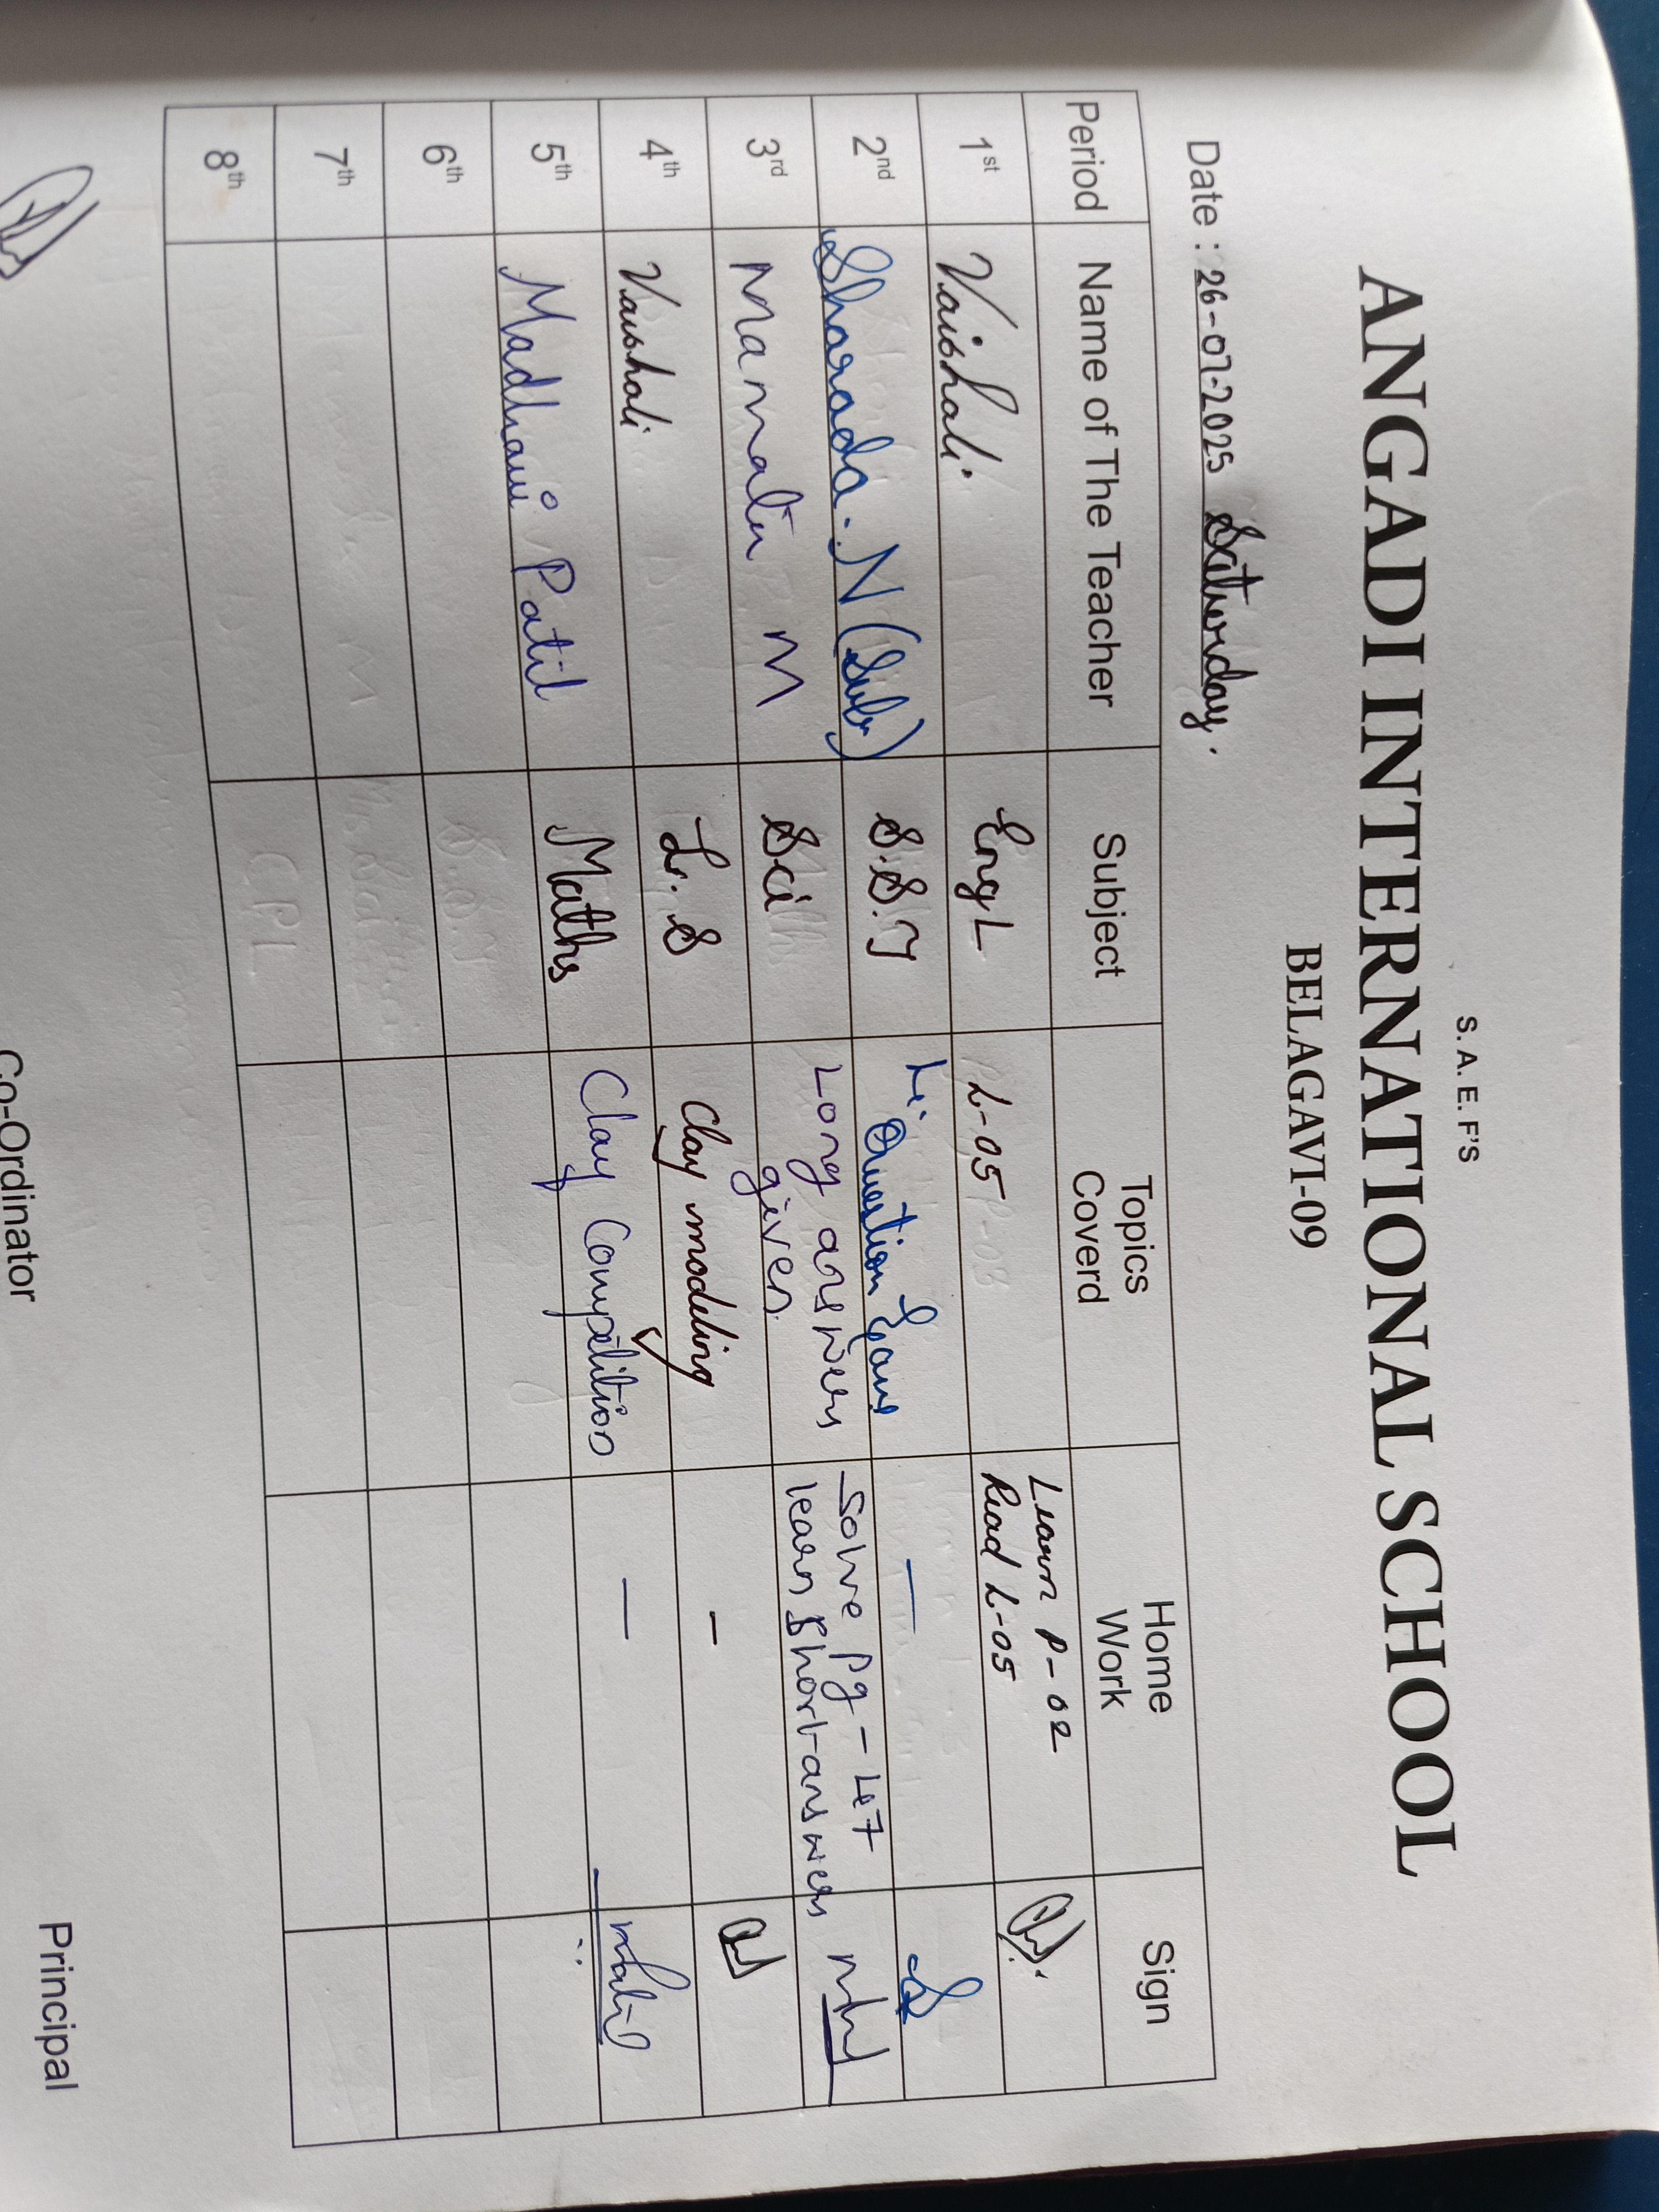 S. A. E. F'S
ANGADI INTERNATIONAL SCHOOL
BELAGAVI-09
Date : 26-07-2025 Saturday.
Period Name of The Teacher Subject Topics Coverd Home Work Sign
1st Vaishali EngL L-05 Learn P-02
Read L-05
2nd Sharada. N (Sub) S.S.T L: Question —
3rd Mamata M Sci Long answers given. Solve Pg-47
learn Short answers
4th Vaishali L. S Clay modeling -
5th Madhavi Patil Maths Clay Competition —
6th
7th
8th
Co-Ordinator Principal